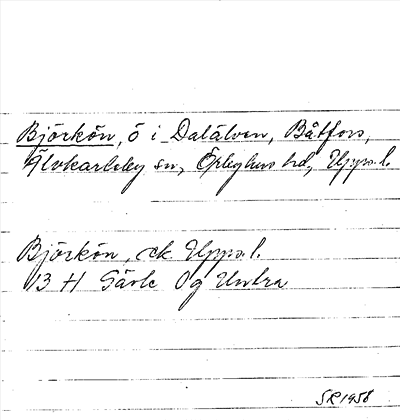 Björkön, ö i Dalälven, Båtfors,
Älvkarleby sn, Örbyhus hd, Upps. l.
Björkön, ek Upps. l.
13 H Gävle Og Untra
SR 1958